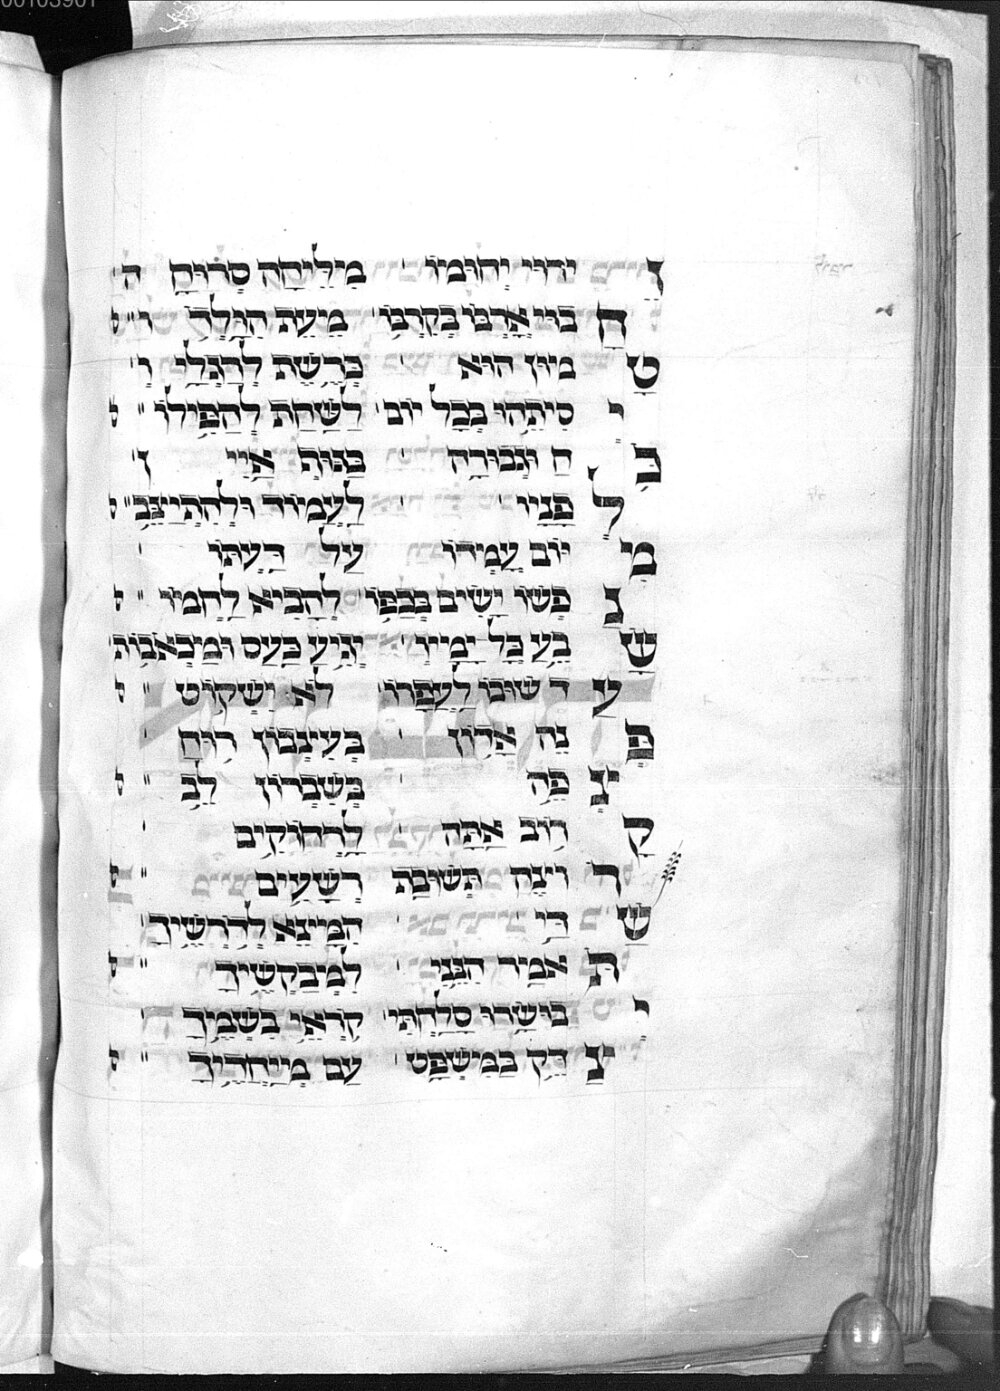 זְ ידוּי יְחוּמוֹ מִמְּלִיחָה סְרוּחָ ה
חַ בוּי אָרְבּוֹ בְּקִרְבּוֹ מֵעֵת הִוָּלְדָ ו ס
טָ מוּן הוּא כְּרֶשֶׁת לְרַגְלָי ו
יְ סִיתֵהוּ בְּכָל יוֹם לַשַּׁחַת לְהַפִּילוֹ ס
כֹּ חַ וּגְבוּרָה בַּנּוּתָ אַיִ ן
לְ פָנָיו לַעֲמוֹד וּלְהִתְיַצֵּב ס
מִ יּוֹם עָמְדוֹ עַל דַּעְתּוֹ
נַ פְשׁוֹ יָשִׂים בְּכַפּוֹ לְהָבִיא לַחְמוֹ ס
שָׂ בֵעַ כָּל יָמָיו יָגִיעַ כַּעַס וּמַכְאֹבוֹת
עַ ד שׁוּבוֹ לַעֲפָרוֹ לֹא יִשְׁקוֹט ס
פְּ נֵה אָדוֹן בְּעִצָּבוֹן רוּחַ
צְ פֵה בְּשִׁבְרוֹן לֵב ס
קָ רוֹב אַתָּה לָרְחוֹקִים
רְ וֹצֶה תְּשׁוּבַת רְשָׁעִים ס
שַׁ דַּי הַמִּצֵּא לְדוֹרְשֶׁיךָ
תֹּ אמַר הִנְנִי לִמְבַקְשֶׁיךָ ס
יְ בוּשְּׂרוּ סָלַחְתִּי קֹרְאֵי בְשִׁמְךָ
צְ דֵק בְּמִשְׁפָּט עַם מְיַחֲדֶיךָ ס